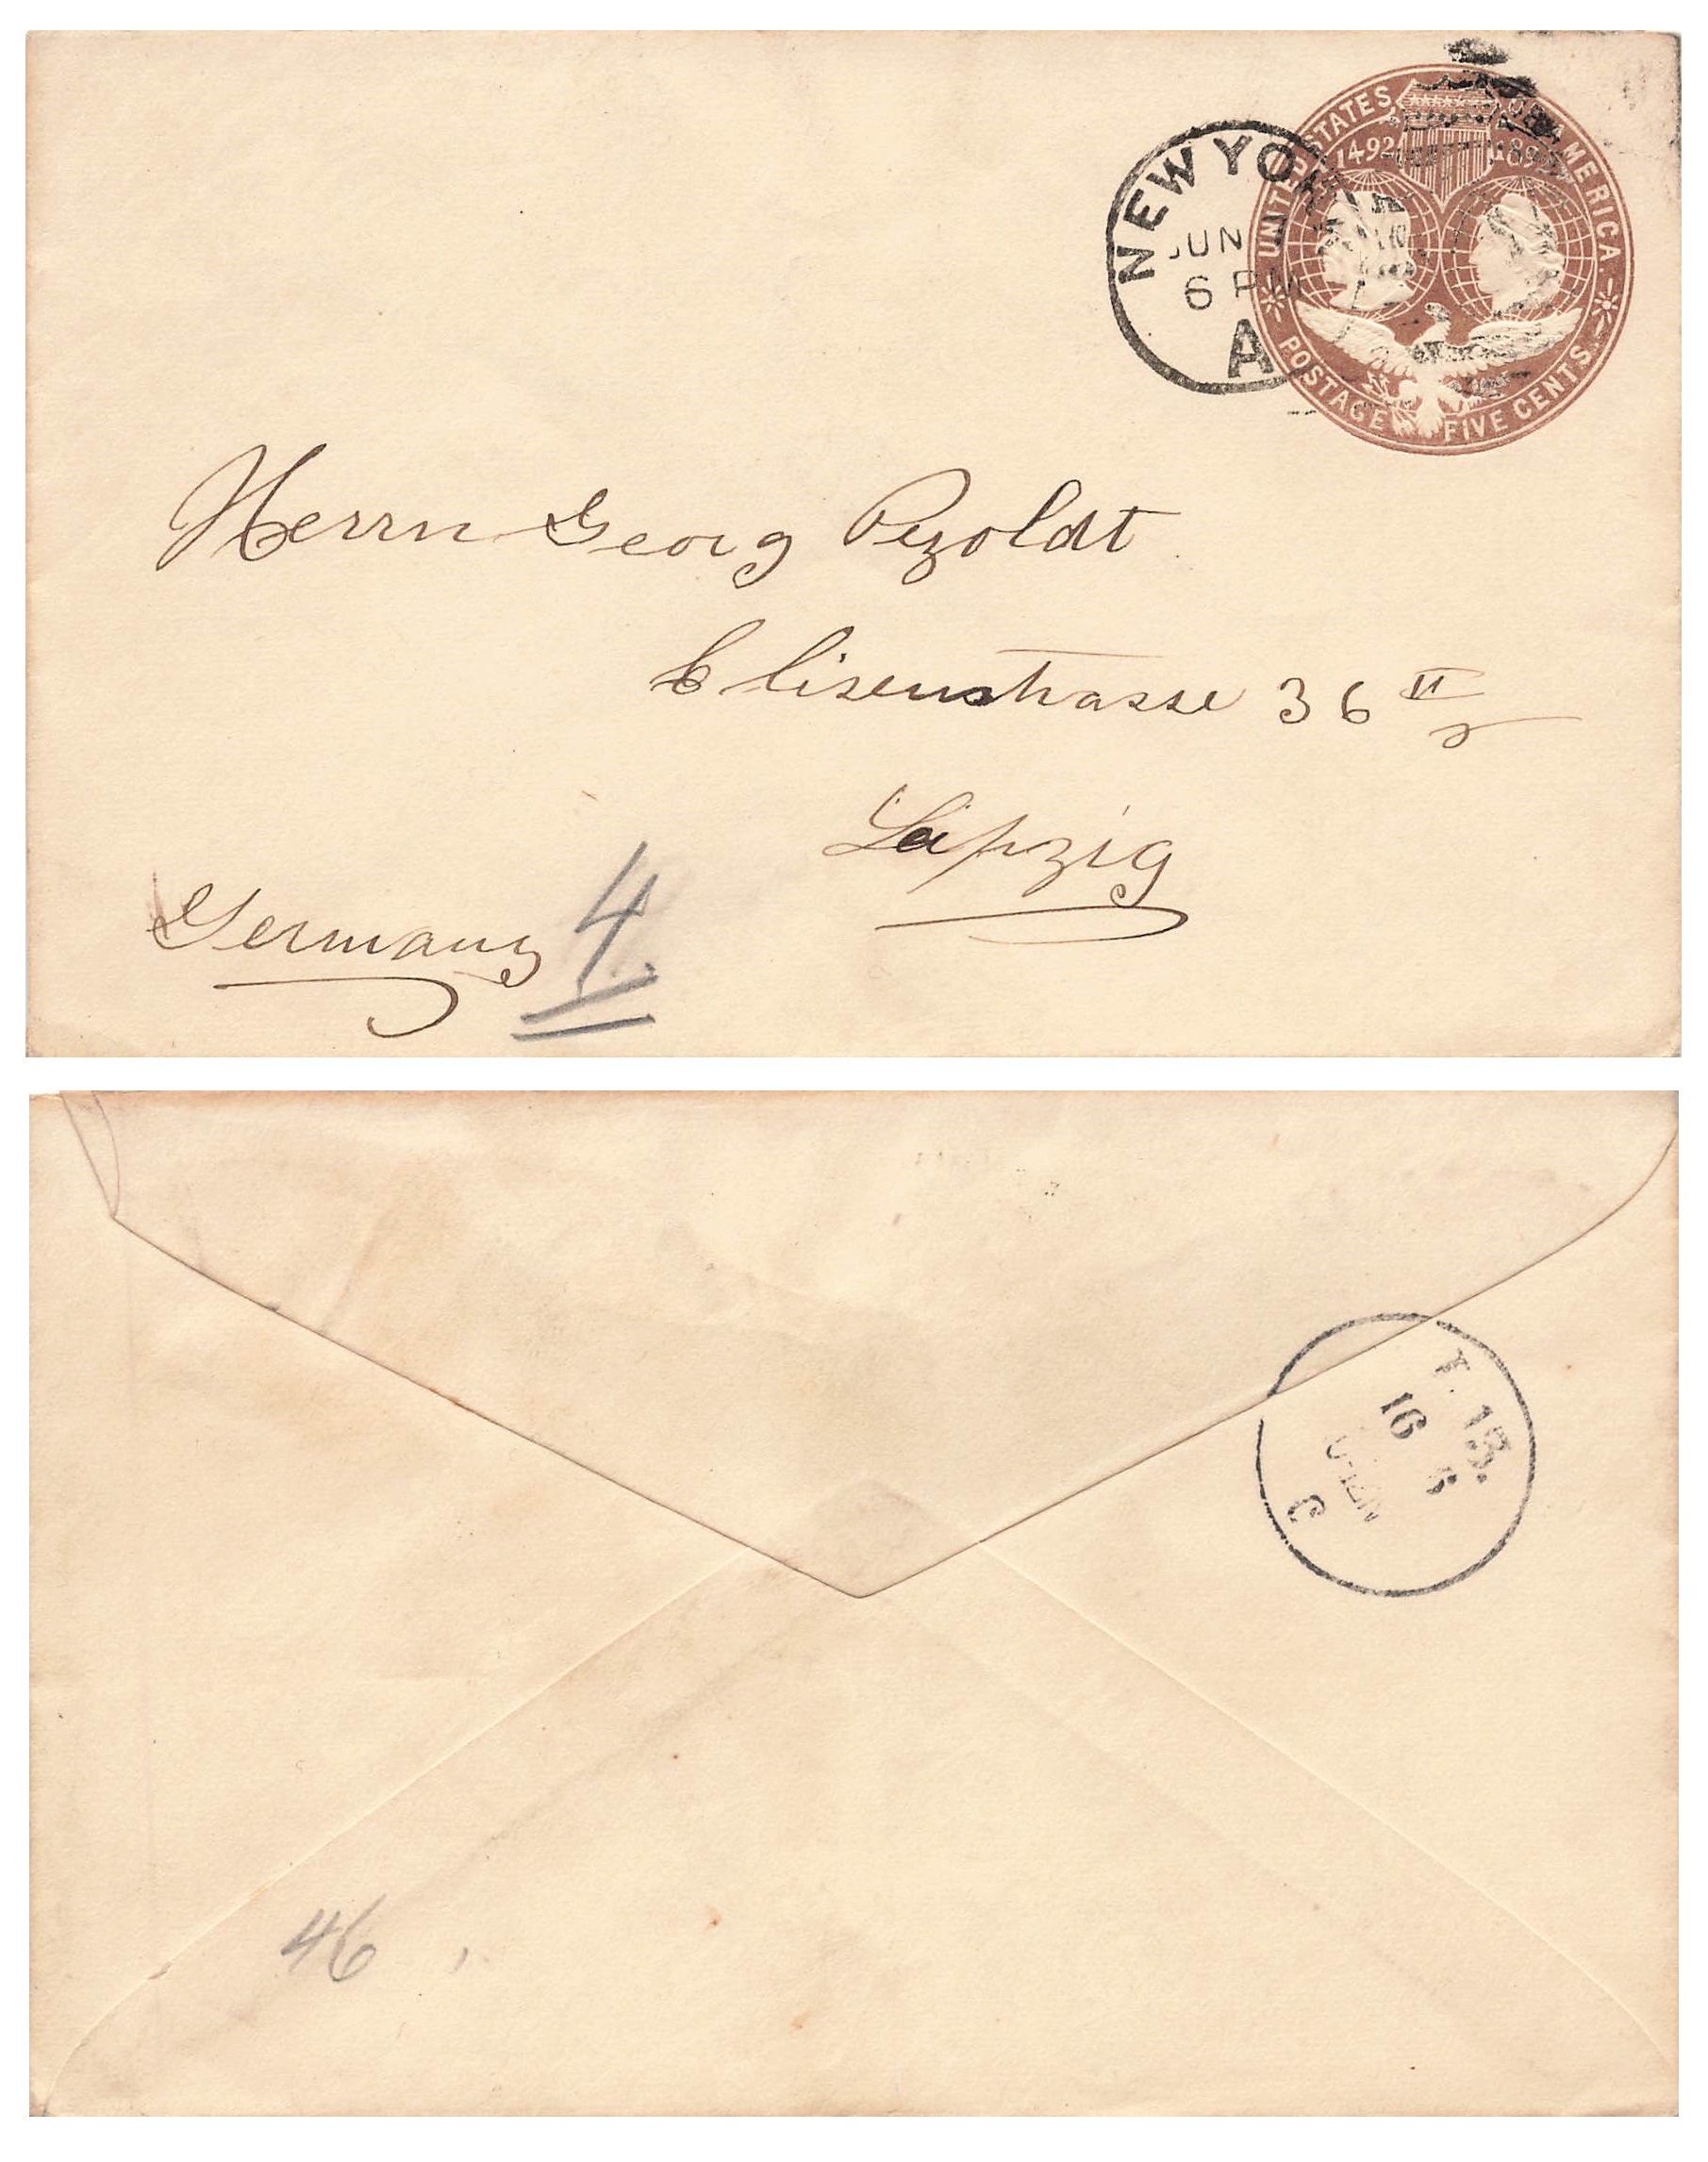 UNITED STATES OF AMERICA
1492 1892
POSTAGE FIVE CENTS
NEW YORK
JUN
6 PM
A
Herrn Georg Pezoldt
Elisenstrasse 36 II
Leipzig
Germany
4.
T. 13.
16 6
C
46